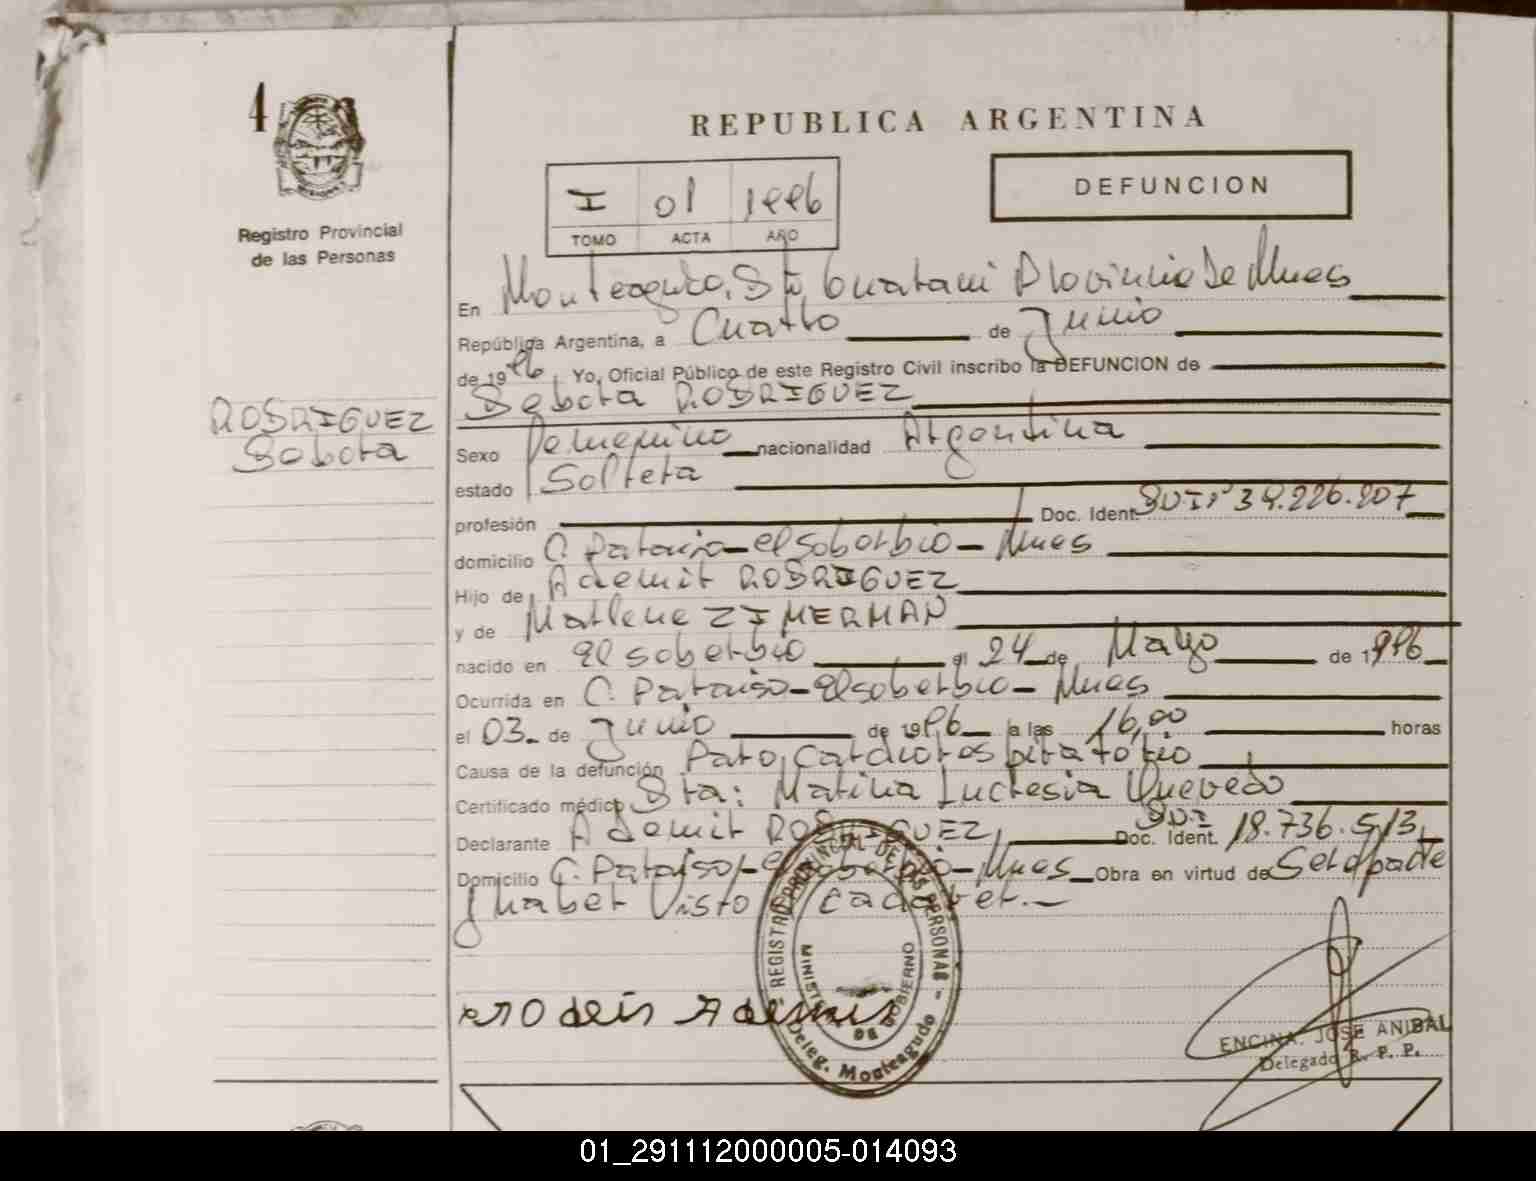 4
Registro Provincial
de las Personas
REPUBLICA ARGENTINA
DEFUNCION
I 01 1996
TOMO ACTA AÑO
En Monteagudo, Dto, Guarani Provincia De Mnes
República Argentina, a Cuatro de Junio
de 1996 Yo, Oficial Público de este Registro Civil inscribo la DEFUNCION de
Debora RODRIGUEZ
RODRIGUEZ
Debora
Sexo Femenino nacionalidad Argentina
estado Soltera
profesión Doc. Ident. DNI Nº 39.226.207
domicilio C. Paraiso - El soberbio - Mnes
Hijo de Ademir RODRIGUEZ
y de Marlene ZIMERMAN
nacido en El soberbio el 24 de Mayo de 1996
Ocurrida en C. Paraiso - El soberbio - Mnes
el 03 de Junio de 1996 a las 16,00 horas
Causa de la defunción Paro, Cardiorespiratorio
Certificado médico Dra: Marina Lucresia Quevedo
Declarante Ademir RODRIGUEZ Doc. Ident. DNI 18.736.513
Domicilio C. Paraiso - El soberbio - Mnes Obra en virtud de Ser padre
y haber Visto cadaver.-
Ademir
REGISTRO PROVINCIAL DE LAS PERSONAS
MINISTERIO DE GOBIERNO
Deleg. Monteagudo
ENCINA, JOSE ANIBAL
Delegado R. P. P.
01_291112000005-014093